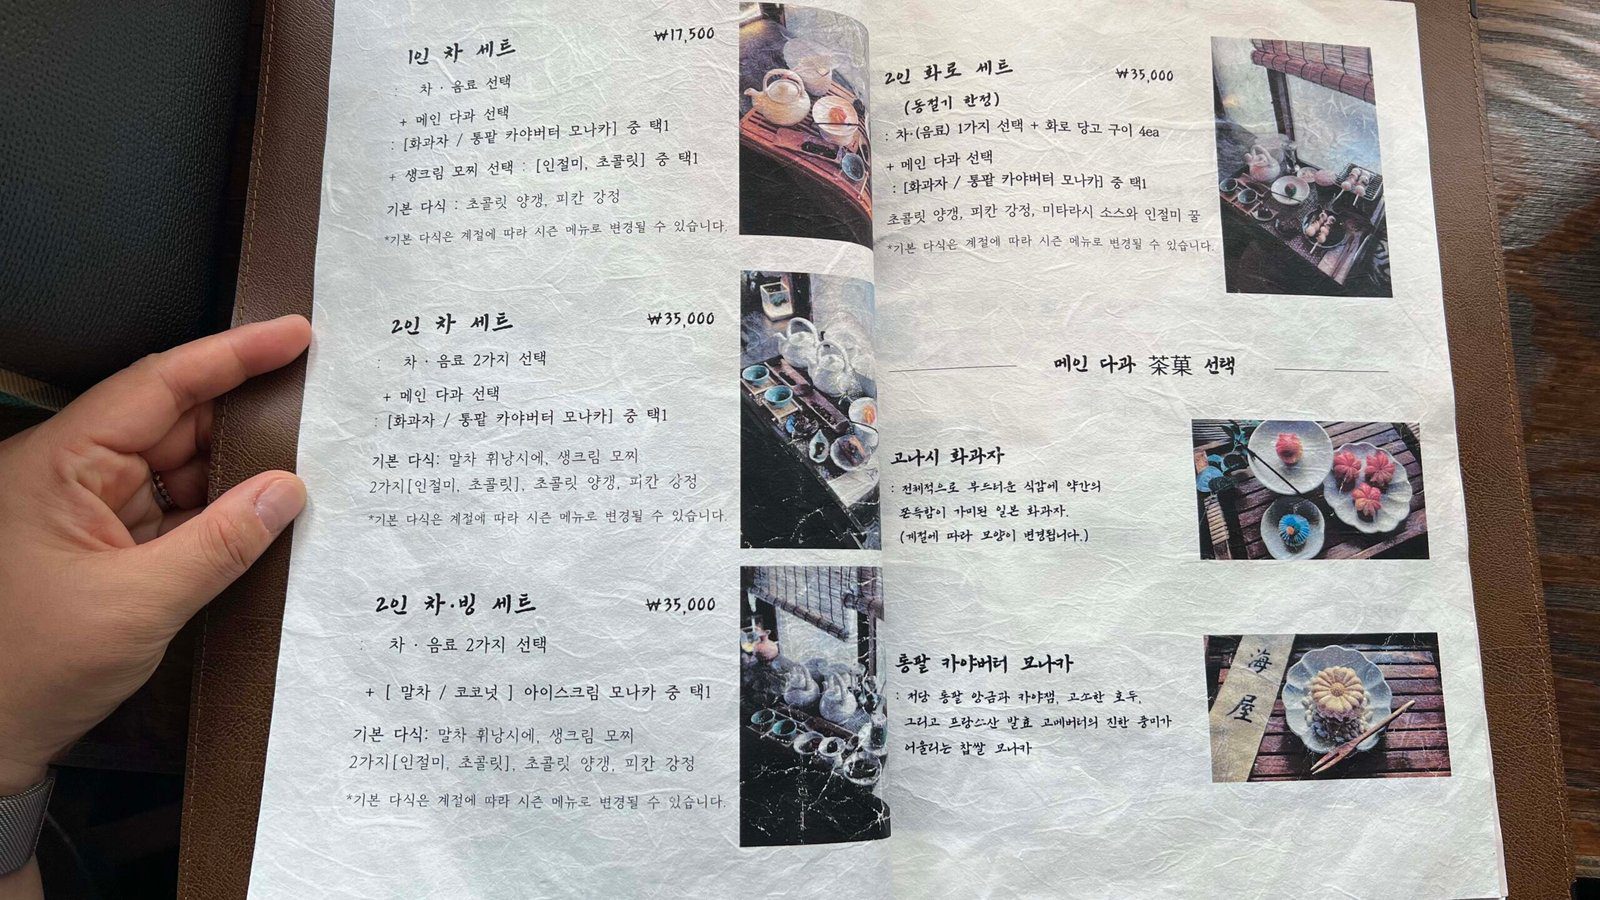 1인 차 세트
₩17,500
: 차 · 음료 선택
+ 메인 다과 선택
: [화과자 / 통팥 카야버터 모나카] 중 택1
+ 생크림 모찌 선택 : [인절미, 초콜릿] 중 택1
기본 다식 : 초콜릿 양갱, 피칸 강정
*기본 다식은 계절에 따라 시즌 메뉴로 변경될 수 있습니다.
2인 차 세트
₩35,000
: 차 · 음료 2가지 선택
+ 메인 다과 선택
: [화과자 / 통팥 카야버터 모나카] 중 택1
기본 다식: 말차 휘낭시에, 생크림 모찌
2가지[인절미, 초콜릿], 초콜릿 양갱, 피칸 강정
*기본 다식은 계절에 따라 시즌 메뉴로 변경될 수 있습니다.
2인 차·빙 세트
₩35,000
: 차 · 음료 2가지 선택
+ [ 말차 / 코코넛 ] 아이스크림 모나카 중 택1
기본 다식: 말차 휘낭시에, 생크림 모찌
2가지[인절미, 초콜릿], 초콜릿 양갱, 피칸 강정
*기본 다식은 계절에 따라 시즌 메뉴로 변경될 수 있습니다.
2인 화로 세트
₩35,000
(동절기 한정)
: 차·(음료) 1가지 선택 + 화로 당고 구이 4ea
+ 메인 다과 선택
: [화과자 / 통팥 카야버터 모나카] 중 택1
초콜릿 양갱, 피칸 강정, 미타라시 소스와 인절미 꿀
*기본 다식은 계절에 따라 시즌 메뉴로 변경될 수 있습니다.
메인 다과 茶菓 선택
고나시 화과자
: 전체적으로 부드러운 식감에 약간의
쫀득함이 가미된 일본 화과자.
(계절에 따라 모양이 변경됩니다.)
통팥 카야버터 모나카
: 저당 통팥 앙금과 카야잼, 고소한 호두,
그리고 프랑스산 발효 고메버터의 진한 풍미가
어울리는 찹쌀 모나카
海
屋